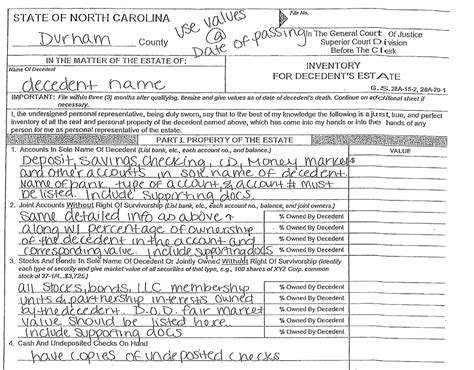 STATE OF NORTH CAROLINA
File No.
Durham County
use values @ Date of passing
In The General Court Of Justice
Superior Court Division
Before The Clerk
IN THE MATTER OF THE ESTATE OF:
Name Of Decedent
decedent name
INVENTORY
FOR DECEDENT'S ESTATE
G.S. 28A-15-2, 28A-20-1
IMPORTANT: File within three (3) months after qualifying. Itemize and give values as of date of decedent's death. Continue on additional sheet if
necessary.
I, the undersigned personal representative, being duly sworn, say that to the best of my knowledge the following is a just, true, and perfect
inventory of all the real and personal property of the decedent named above, which has come into my hands or into the hands of any
person for me as personal representative of the estate.
PART I. PROPERTY OF THE ESTATE
1. Accounts In Sole Name Of Decedent (List bank, etc., each account no., and balance.)
VALUE
Deposit, Savings, Checking, CD, Money market
$
and other accounts in sole name of decedent.
Name of bank, type of account, & account # must
be listed. Include supporting docs.
2. Joint Accounts Without Right Of Survivorship (List bank, etc., each account no., balance, and joint owners.)
same detailed info as above +
% Owned By Decedent
along w/ percentage of ownership
% Owned By Decedent
of the decedent in the account and
% Owned By Decedent
corresponding value. include supporting docs
% Owned By Decedent
3. Stocks And Bonds In Sole Name Of Decedent Or Jointly Owned Without Right Of Survivorship (Identify
each type of security and give market value of all securities of that type, e.g., 100 shares of XYZ Corp. common
stock of 37-1/4...$3,725.)
all stocks, bonds, LLC membership
% Owned By Decedent
units & partnership interests owned
% Owned By Decedent
by the decedent. D.O.D. fair market
% Owned By Decedent
value should be listed here.
% Owned By Decedent
Include supporting docs
% Owned By Decedent
4. Cash And Undeposited Checks On Hand
have copies of undeposited checks